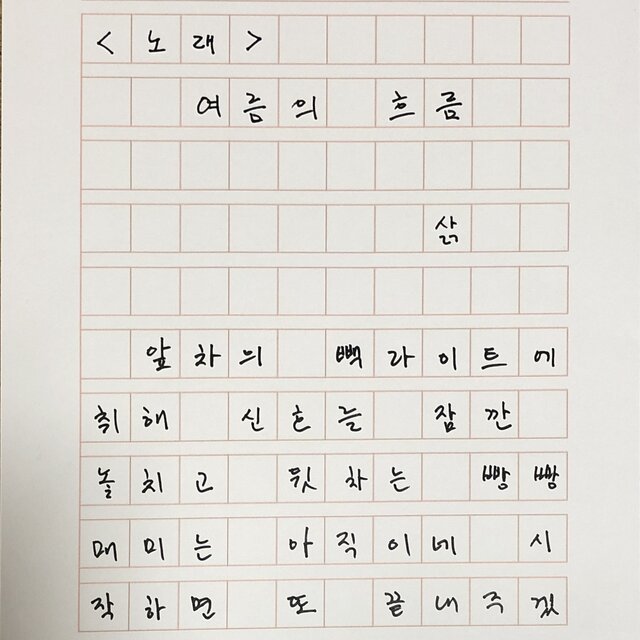 <노래>
여름의 흐름
삵
앞차의 빽라이트에
취해 신호를 잠깐
놓치고 뒷차는 빵빵
매미는 아직이네 시
작하면 또 끝내주겠